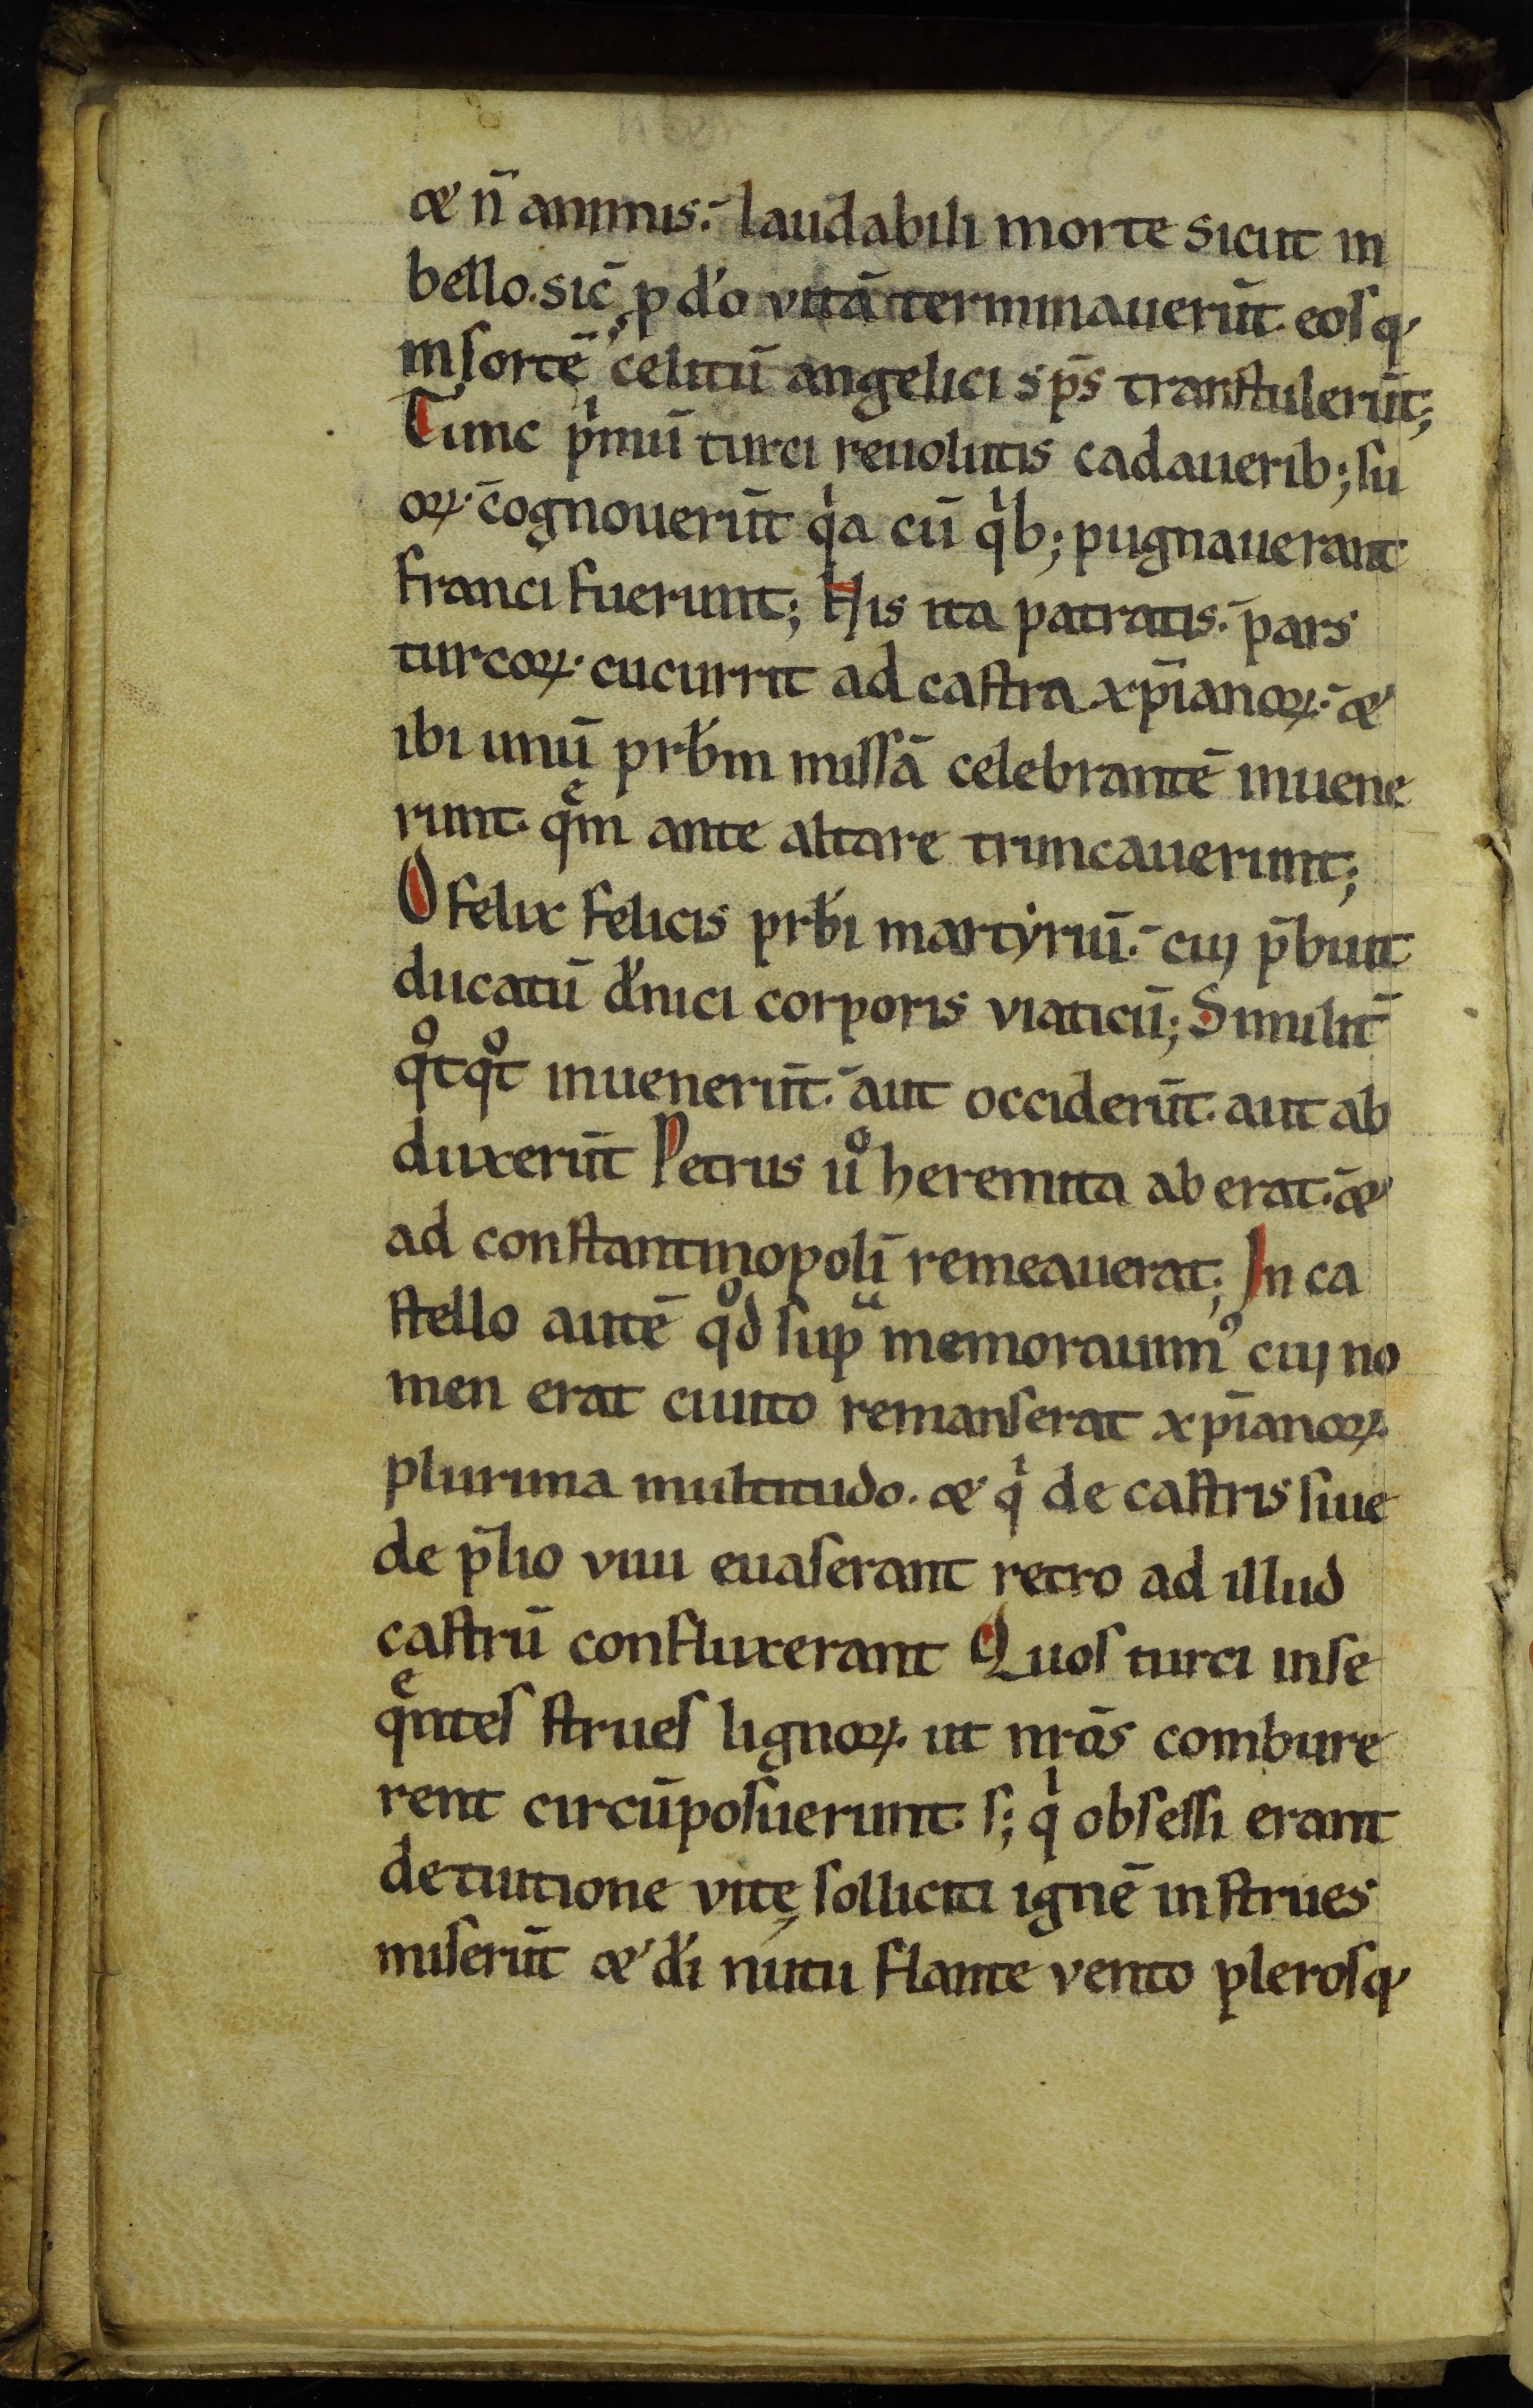 & n̄ animis. laudabili morte sicut in
bello. sic̄ p dō vitā terminauerūt. eosq;
in sortē celitū angelici sp̄s transtulerūt;
Tunc pͥmū turci reuolutis cadauerib; su
oꝝ. cognouerūt qͥa cū qͥb; pugnauerant
franci fuerunt; His ita patratis. pars
turcoꝝ. cucurrit ad castra xp̄ianoꝝ. &
ibi unū prb̄m missā celebrantē inuene
runt. qͤm ante altare truncauerunt;
O felix felicis prb̄i martẏriū. cuꝰ p̄buit
ducatū dn̄ici corporis viaticū; Similit̄
qͦtqͦt inuenerūt. aut occiderūt. aut ab
duxerūt Petrus uͦ heremita ab erat. &
ad constantinopolī remeauerat; In ca
stello autē qͦd supͣ memorauimꝰ cuꝰ no
men erat ciuito remanserat xp̄ianoꝝ.
plurima multitudo. & qͥ de castris siue
de p̄lio viui euaserant retro ad illud
castrū confluxerant Quos turci inse
qͤntes strues lignoꝝ. ut nr̄os combure
rent circūposuerunt. s; qͥ obsessi erant
de tuitione vitę solliciti ignē in strues
miserūt & dī nutu flante vento plerosq;